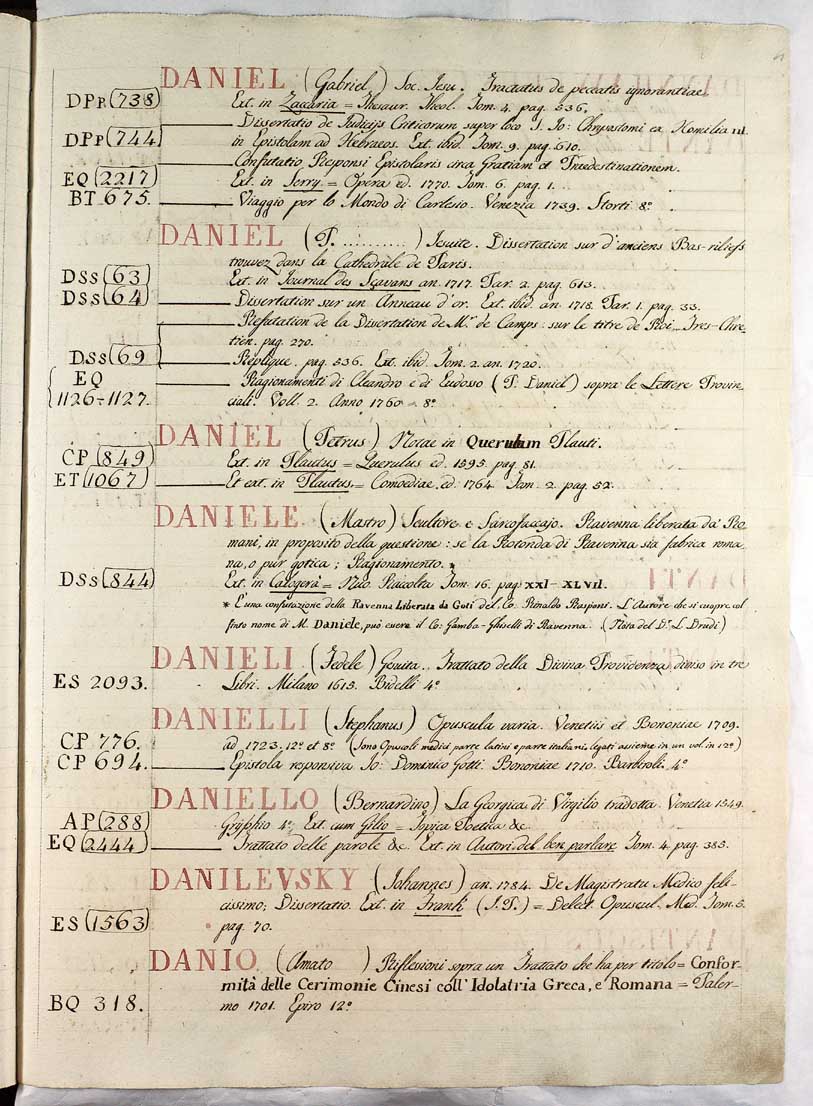 DANIEL (Gabriel) Soc. Iesu. Tractatus de peccatis ignorantiae.
DPp (738 Ext. in Zaccaria = Thesaur. Theol. Tom. 4. pag. 536.
Dissertatio de Judicijs Criticorum super loco S. Io: Chrysostomi ex Homilia III.
DPp (744 in Epistolam ad Hebraeos. Ext. ibid. Tom. 9. pag. 610.
Confutatio Responsi Epistolaris circa Gratiam et Praedestinationem.
EQ (2217 Ext. in Serry = Opera ed. 1770. Tom. 6. pag. 1.
BT 675. Viaggio per lo Mondo di Cartesio. Venezia 1739. Storti 8º
DANIEL (P. ..........) Iesuite. Dissertation sur d'anciens Bas-riliefs
trouvez dans la Cathedrale de Paris.
DSs (63 Ext. in Journal des Sçavans an. 1717. Par. 2. pag. 613.
DSs (64 Dissertation sur un Anneau d'or. Ext. ibid. an. 1718. Par. 1. pag. 33.
Refutation de la Dissertation de Mr. de Camps: sur le titre de Roi Tres-Chre-
tien. pag. 270.
DSs (69 Replique. pag. 536. Ext. ibid. Tom. 2. an. 1720.
EQ Ragionamenti di Cleandro e di Eudosso (P. Daniel) sopra le Lettere Provin-
1126÷1127. ciali. Voll. 2. Anno 1760 = 8º
DANIEL (Petrus) Notae in Querulum Plauti.
CP (849 Ext. in Plautus = Querulus ed. 1595. pag. 81.
ET (1067 Et ext. in Plautus = Comoediae. ed. 1764. Tom. 2. pag. 52.
DANIELE (Mastro) Scultore e Sarcofaccajo. Ravenna liberata da' Ro-
mani, in proposito della questione: se la Rotonda di Ravenna sia fabrica roma-
na, o pur gotica; Ragionamento. *
DSs (844 Ext. in Calogerà = Nuo. Raccolta Tom. 16. pag. XXI - XLVII.
* È una confutazione della Ravenna Liberata da Goti del Co. Rinaldo Rasponi. L'Autore che si cuopre col
finto nome di M. Daniele, può essere il Co: Gamba-Ghiselli di Ravenna. (Nota del Dr. L. Drudi)
DANIELI (Fedele) Gesuita. Trattato della Divina Provvidenza diviso in tre
ES 2093. Libri. Milano 1615. Bidelli 4º
DANIELLI (Stephanus) Opuscula varia. Venetiis et Bononiae 1709.
CP 776. ad 1723. 12º et 8º (Sono Opuscoli medici parte latini e parte italiani, legati assieme in un vol. in 12º)
CP 694. Epistola responsiva Io: Dominico Gotti. Bononiae 1710. Barbiroli. 4º
DANIELLO (Bernardino) La Georgica di Virgilio tradotta. Venetia 1549.
AP (288 Grifphio 4º; Ext. cum Gilio = Topica Poetica &c.
EQ (2444 Trattato delle parole &c. Ext. in Autori del ben parlare Tom. 4. pag. 385.
DANILEVSKY (Johannes) an. 1784. De Magistratu Medico feli-
cissimo; Dissertatio. Ext. in Frank (I. P.) = Delect. Opuscul. Med. Tom. 5.
ES (1563 pag. 70.
DANIO (Amato ) Riflessioni sopra un Trattato che ha per titolo = Confor-
mità delle Cerimonie Cinesi coll'Idolatria Greca, e Romana = Paler-
BQ 318. mo 1701. Epiro 12º